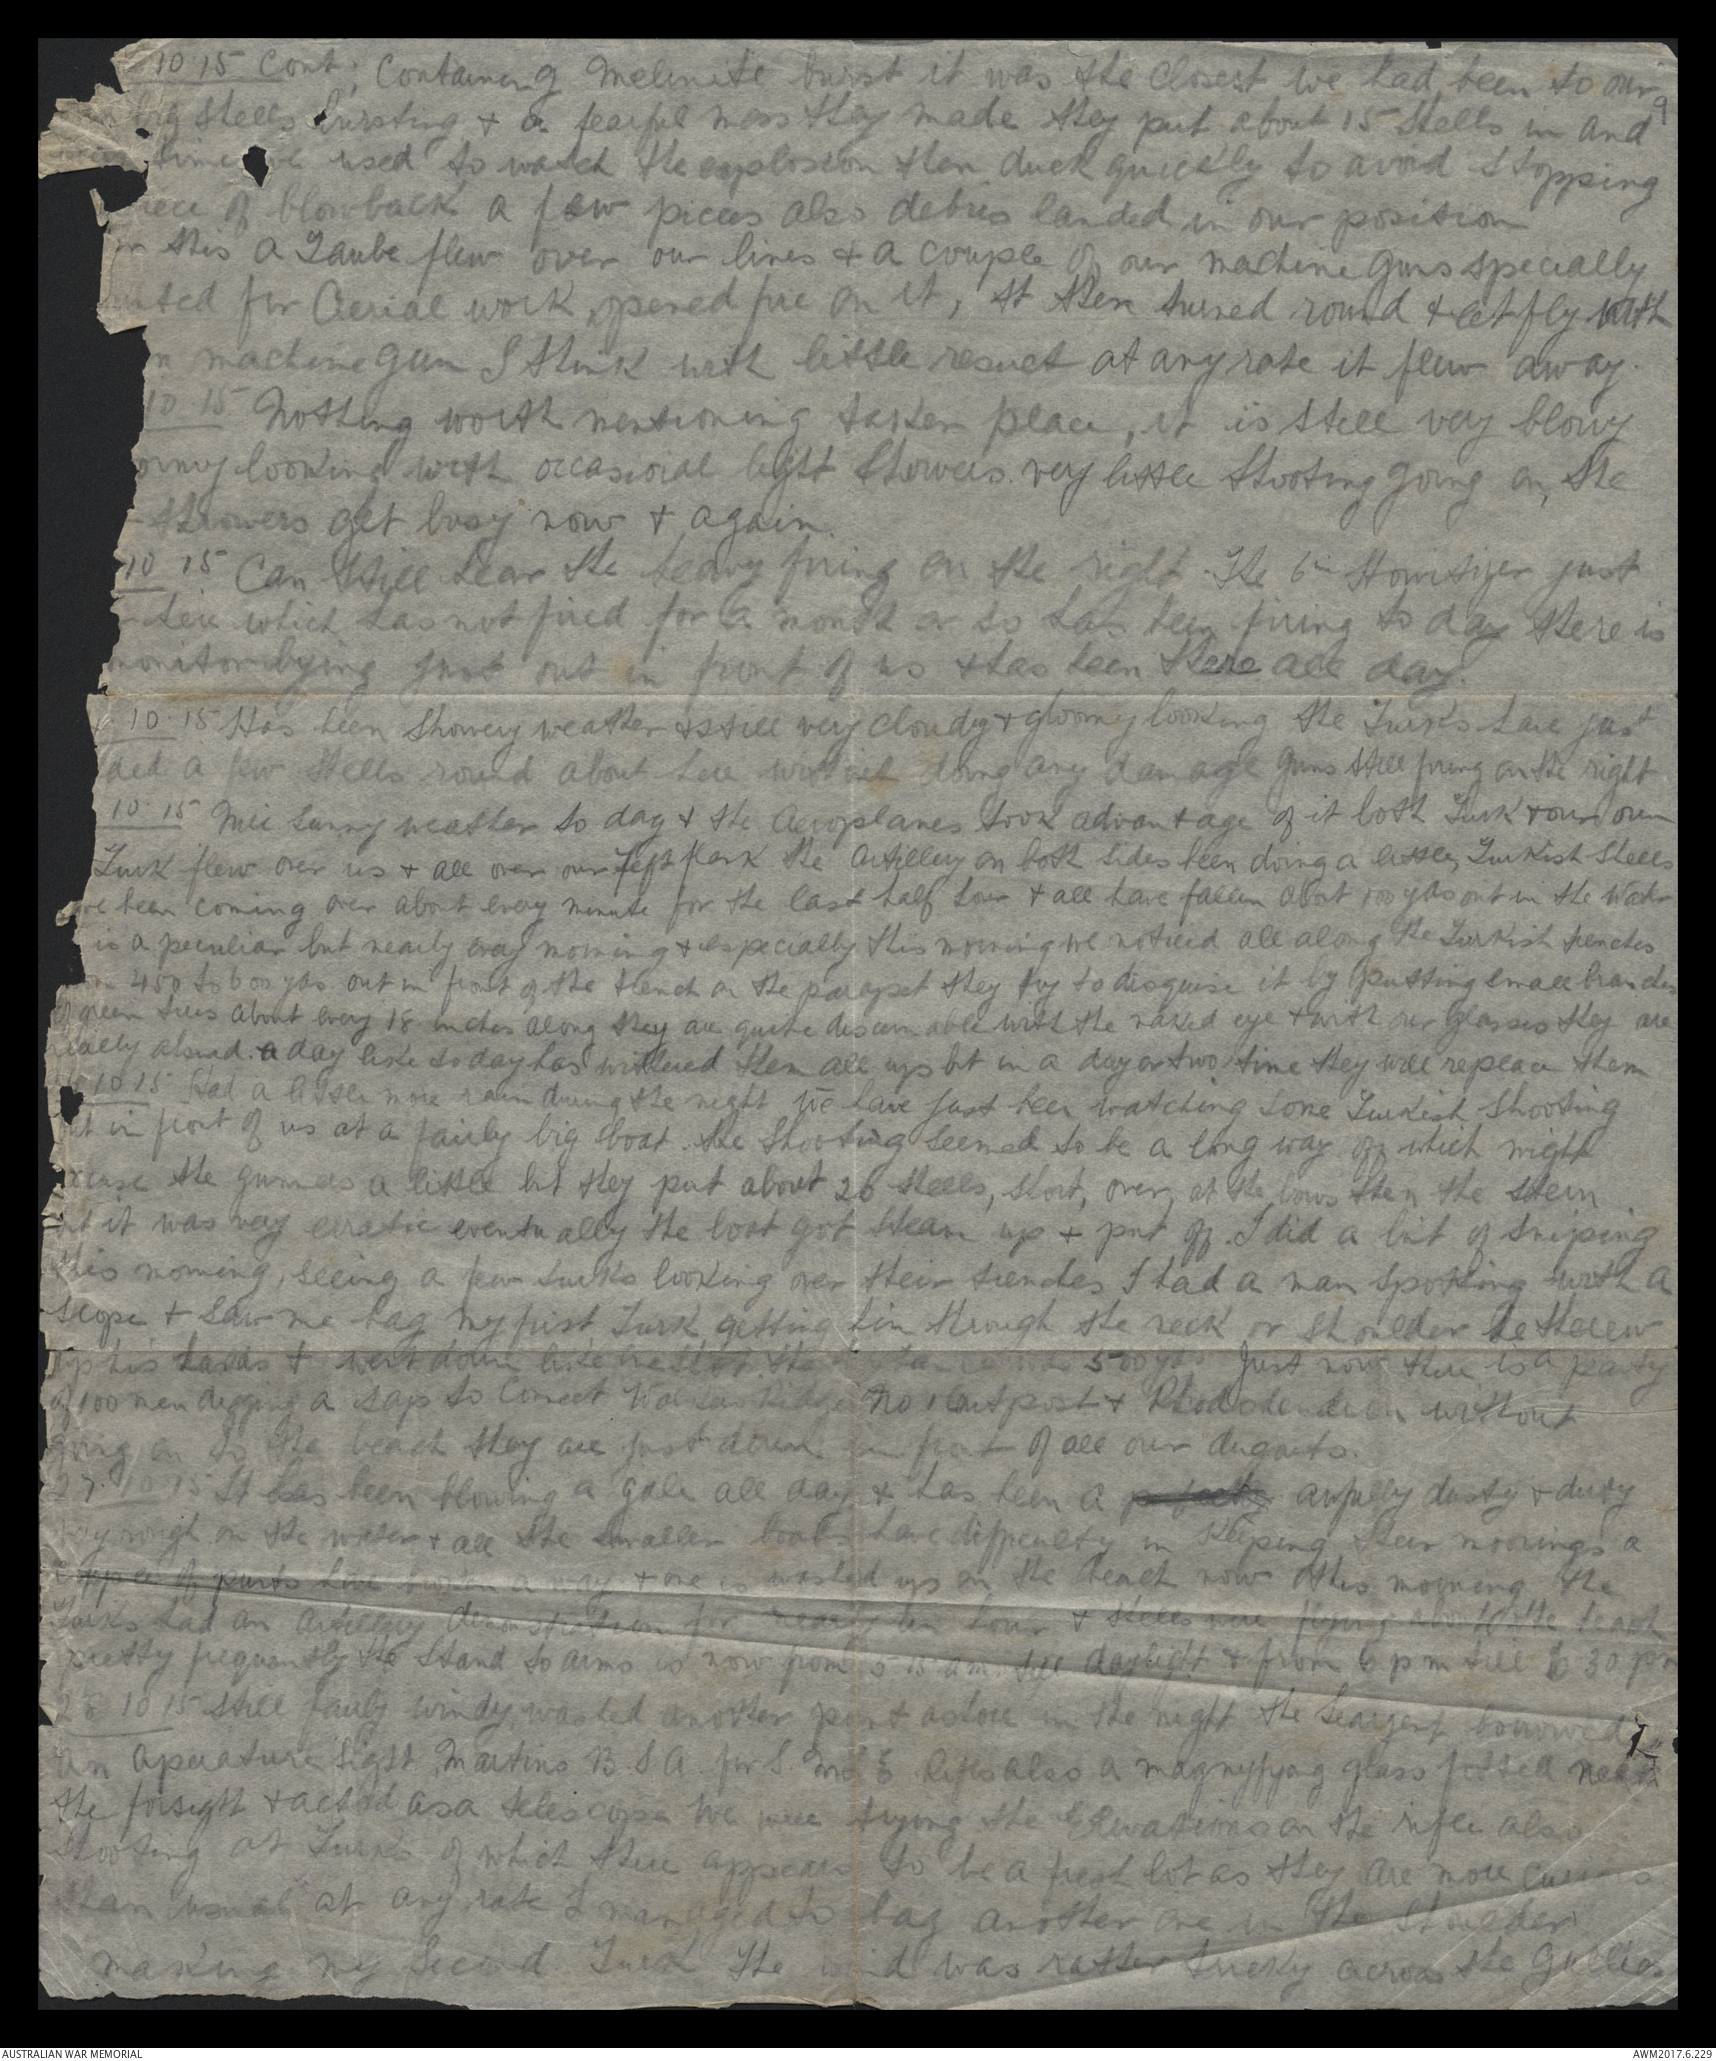 10 15 Cont; Containing Melinite burst it was the closest we had been to our
9
big shells bursting & a fearful mess they made they put about 15 shells in and
time we used to watch the explosion then duck quickly to avoid stopping
piece of blowback a few pieces also debris landed in our position
this a Taube flew over our lines & a couple of our machine guns specially
for Aerial work opened fire on it, it then turned round & let fly with
machine gun I think with little result at any rate it flew away.
10 15 Nothing worth mentioning taken place, it is still very blowy
looking with occasional light showers. very little shooting going on, the
throwers get busy now & again.
10 15 Can still hear the heavy firing on the right. The 6in Howitzer just
here which has not fired for a month or so has been firing to day there is
monitor lying just out in front of us & has been there all day.
10. 15 Has been showery weather & still very cloudy & gloomy looking the Turks have just
a few shells round about here without doing any damage guns still firing on the right
10. 15 Nice sunny weather to day & the Aeroplanes took advantage of it both Turk & our own
Turk flew over us & all over our left flank the Artillery on both sides been doing a little, Turkish shells
have been coming over about every minute for the last half hour & all have fallen about 100 yds out in the water
is a peculiar but nearly every morning & especially this morning we noticed all along the Turkish trenches
450 to 600 yds out in front of the trench on the parapet they try to disguise it by putting small branches
of green trees about every 18 inches along they are quite discernable with the naked eye & with our glasses they are
really absurd. a day like to day has withered them all up but in a day or two time they will replace them
10 15 Had a little more rain during the night We have just been watching some Turkish shooting
out in front of us at a fairly big boat. the shooting seemed to be a long way off which might
excuse the gunners a little but they put about 20 shells, short, over, at the bows then the stern
but it was very erratic eventually the boat got steam up & put off. I did a bit of sniping
this morning, seeing a few Turks looking over their trenches I had a man spotting with a
scope & saw me bag my first Turk getting him through the neck or shoulder he threw
up his hands & went down like 500 yds Just now there is a party
of 100 men digging a sap to connect Walkers Ridge No 1 Outpost & Rhododendron without
going on to the beach they are just down in front of all our dugouts.
27. 10 15 It has been blowing a gale all day & has been a awfully dusty & dirty
very rough on the water & all the smaller boats have difficulty in keeping their moorings a
couple of punts have broken away & one is washed up on the beach now this morning the
Turks had an Artillery demonstration for nearly an hour & shells were flying about the beach
pretty frequently the Stand to arms is now from 5 15 am till daylight & from 6 pm till 6 30 pm
28 10 15 Still fairly windy, washed another punt ashore in the night the Seargent borrowed
an Aperature Sight Martins B.S.A. for S. Rifles also a magnyfying glass fitted near
the forsight & acted as a telescope We were trying the Elevations on the rifle also
shooting at Turks of which there appears to be a fresh lot as they are more curious
than usual at any rate I managed to bag another one in the shoulder
making my second Turk the wind was rather tricky across the Gullies
AUSTRALIAN WAR MEMORIAL
AWM2017.6.229